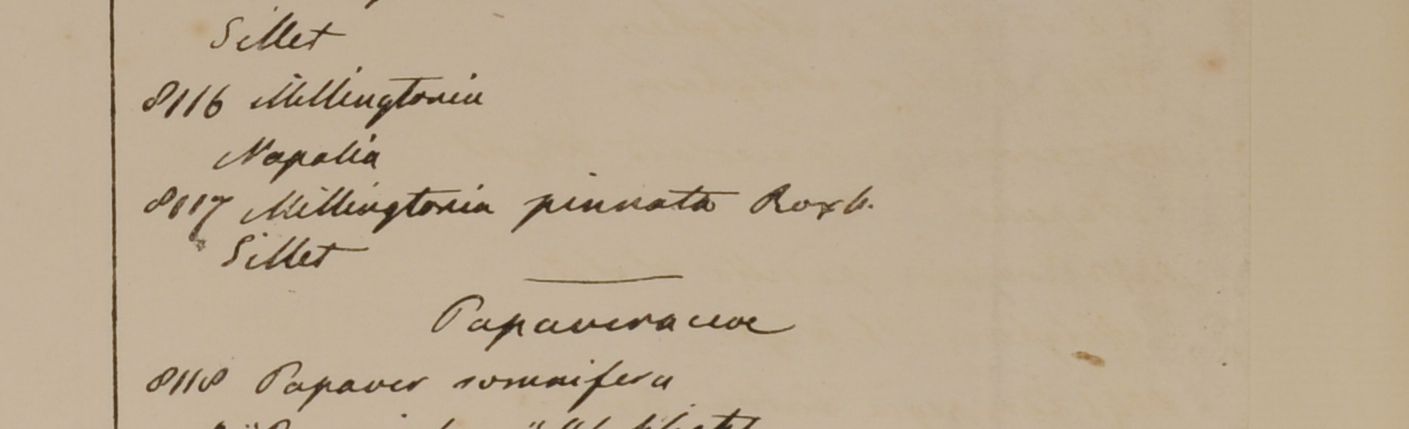 Sillet
8116 Millingtonia
Napalia
8117 Millingtonia pinnata Roxb.
Sillet
Papaveraceae
8118 Papaver somnifera